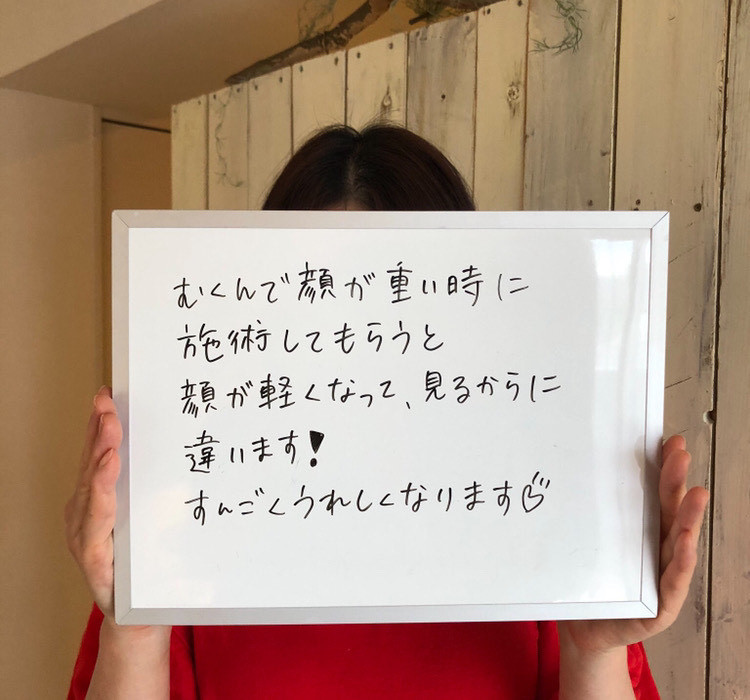 むくんで顔が重い時に
施術してもらうと
顔が軽くなって、見るからに
違います!
すんごくうれしくなります♡